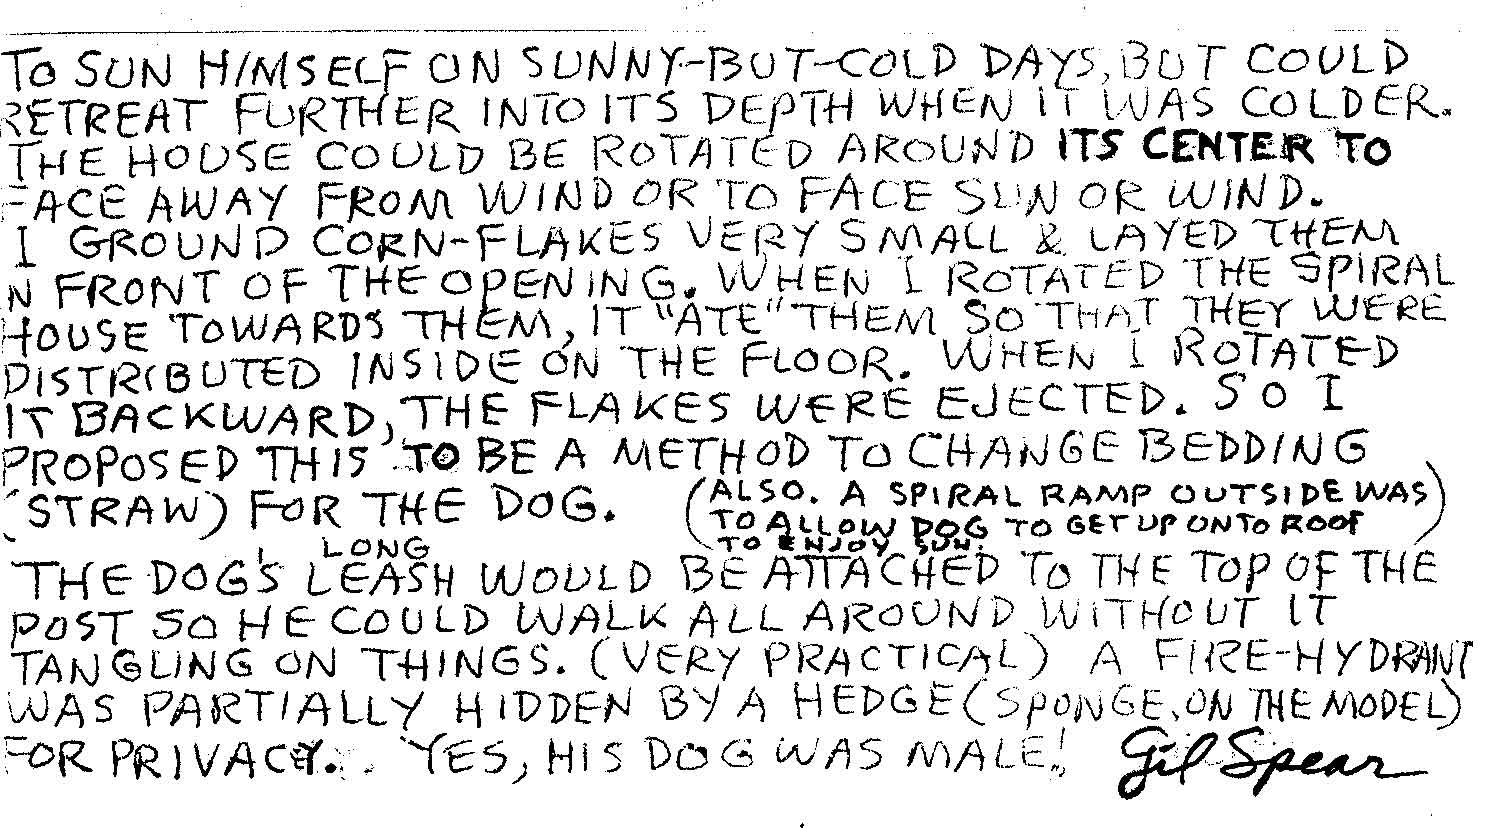 TO SUN HIMSELF ON SUNNY-BUT-COLD DAYS, BUT COULD
RETREAT FURTHER INTO ITS DEPTH WHEN IT WAS COLDER.
THE HOUSE COULD BE ROTATED AROUND ITS CENTER TO
FACE AWAY FROM WIND OR TO FACE SUN OR WIND.
I GROUND CORN-FLAKES VERY SMALL & LAYED THEM
IN FRONT OF THE OPENING. WHEN I ROTATED THE SPIRAL
HOUSE TOWARDS THEM, IT "ATE" THEM SO THAT THEY WERE
DISTRIBUTED INSIDE ON THE FLOOR. WHEN I ROTATED
IT BACKWARD, THE FLAKES WERE EJECTED. SO I
PROPOSED THIS TO BE A METHOD TO CHANGE BEDDING
(STRAW) FOR THE DOG. (ALSO. A SPIRAL RAMP OUTSIDE WAS
TO ALLOW DOG TO GET UP ONTO ROOF
TO ENJOY SUN.)
LONG
THE DOG'S LEASH WOULD BE ATTACHED TO THE TOP OF THE
POST SO HE COULD WALK ALL AROUND WITHOUT IT
TANGLING ON THINGS. (VERY PRACTICAL) A FIRE-HYDRANT
WAS PARTIALLY HIDDEN BY A HEDGE (SPONGE, ON THE MODEL)
FOR PRIVACY. YES, HIS DOG WAS MALE! Gil Spear